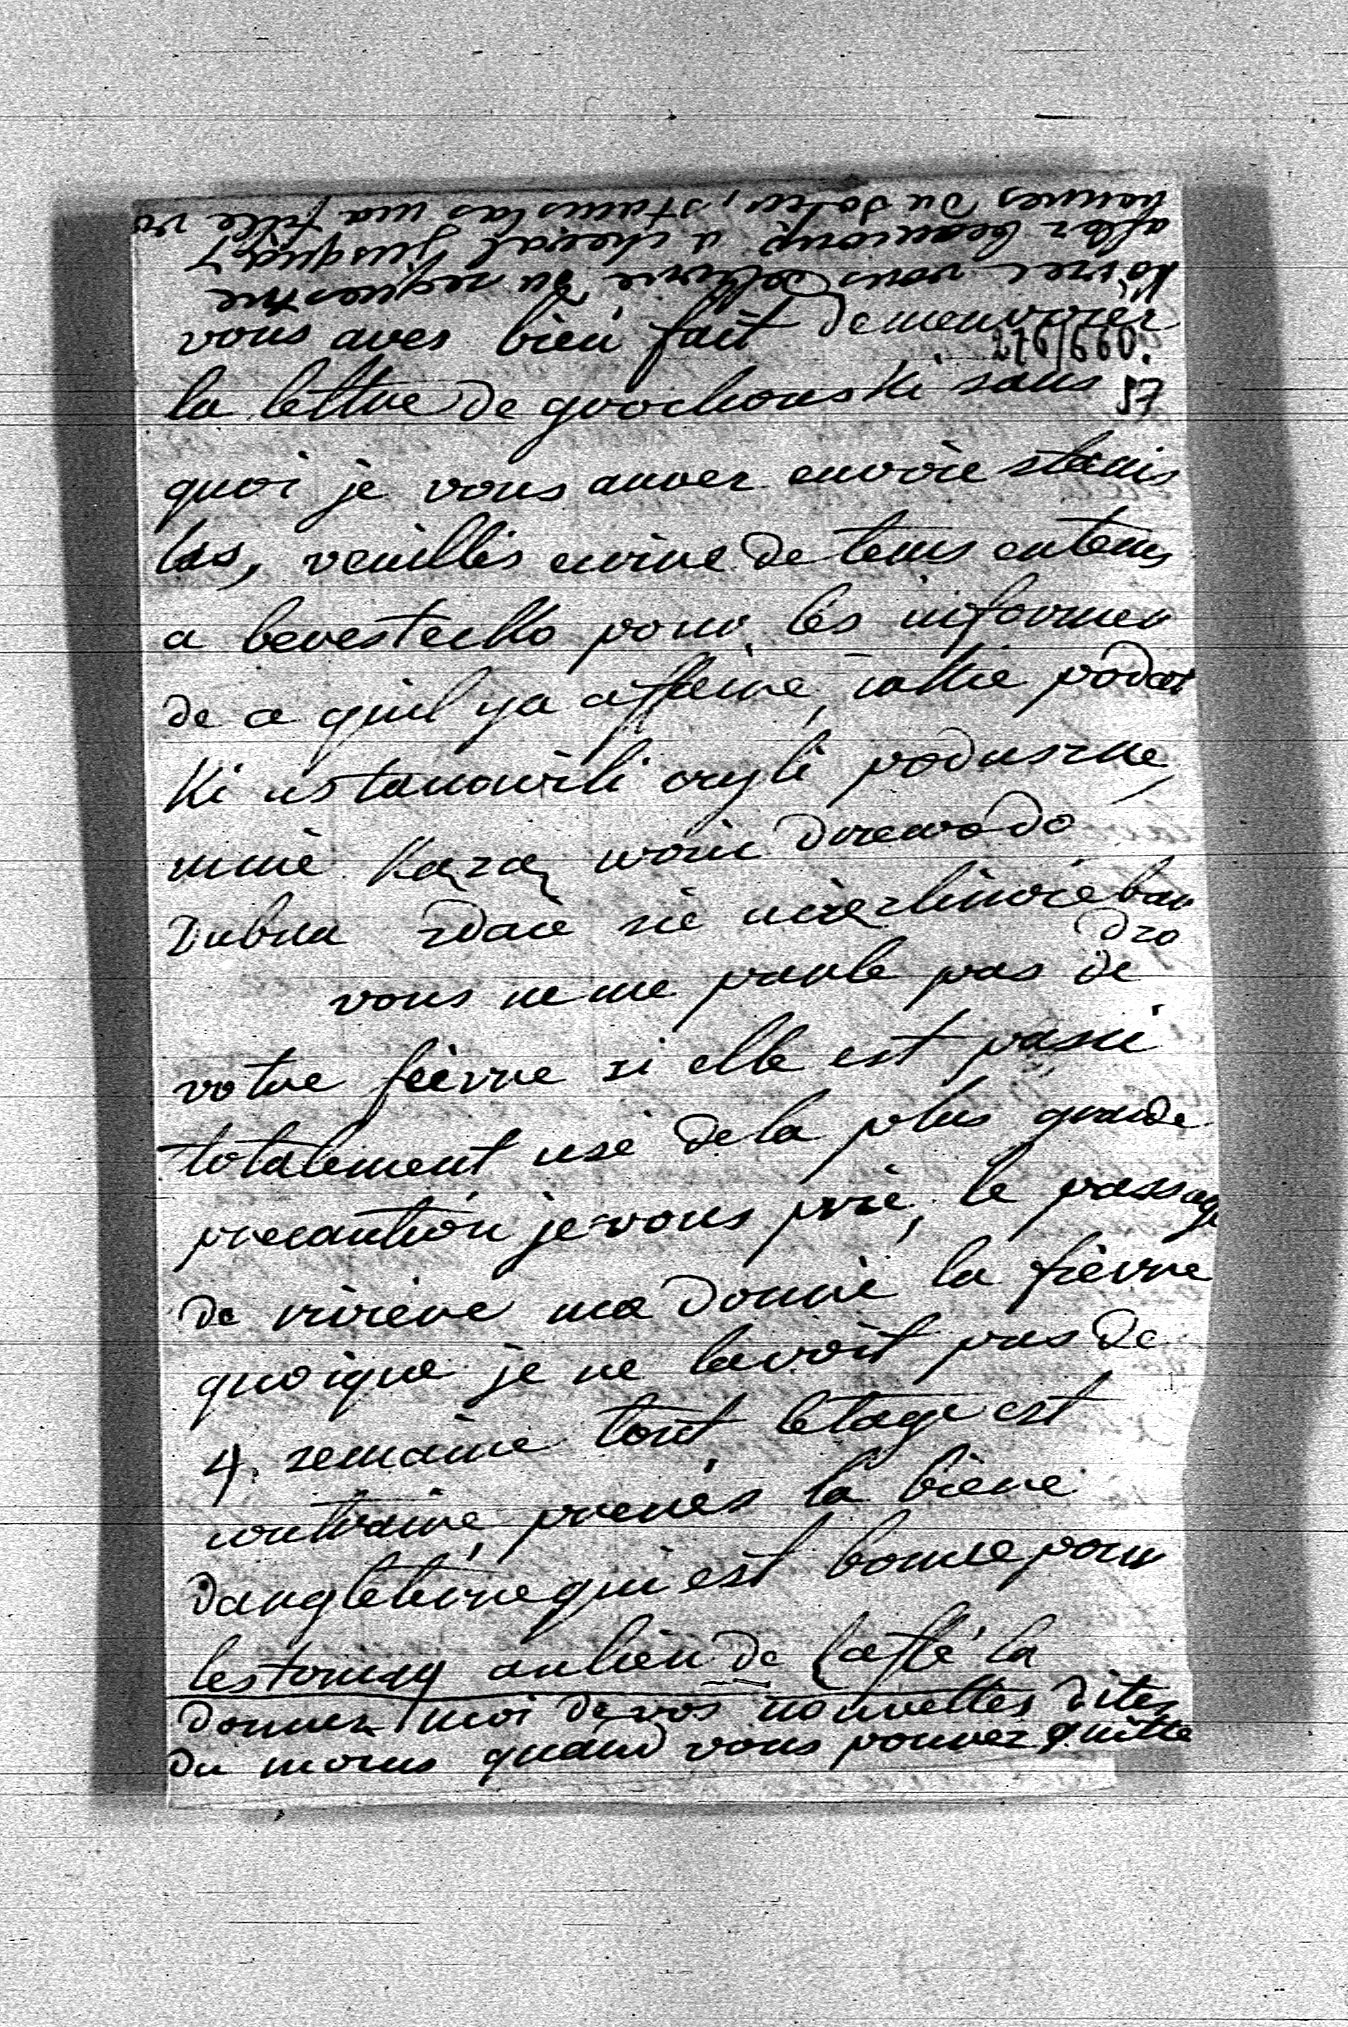 vous aves bien fait demenvoier
276/660.
la lettre de grochouski sans
57
quoi je vous auver envoie stanis
las, veuillés ecrire de tems entems
a berestecko pour les informer
de ce quil ya affaire, iakie podat
Ki ustanowili czyli poduszne,
mnie kazą woic drewa do
Dubna zdaie sie
dzo
vous ne me parle pas de
votre fievre si elle est passé
totalement usé dela plus grande
precaution je vous prie, le passage
de riviere ma donné la fievre
quoique je ne lavoit pas de
4. semaine tout letage est
contraire, prenés la biere
dangleterre qui est bonne pour
lestomag aulieu de Caffé la
donnez moi de vos nouvelles dites
du moins quand vous pouvez quitte
vous du sequestre
aller beaucoup a cheval jusqua 7
heures du soir, stanislas ma fille vo